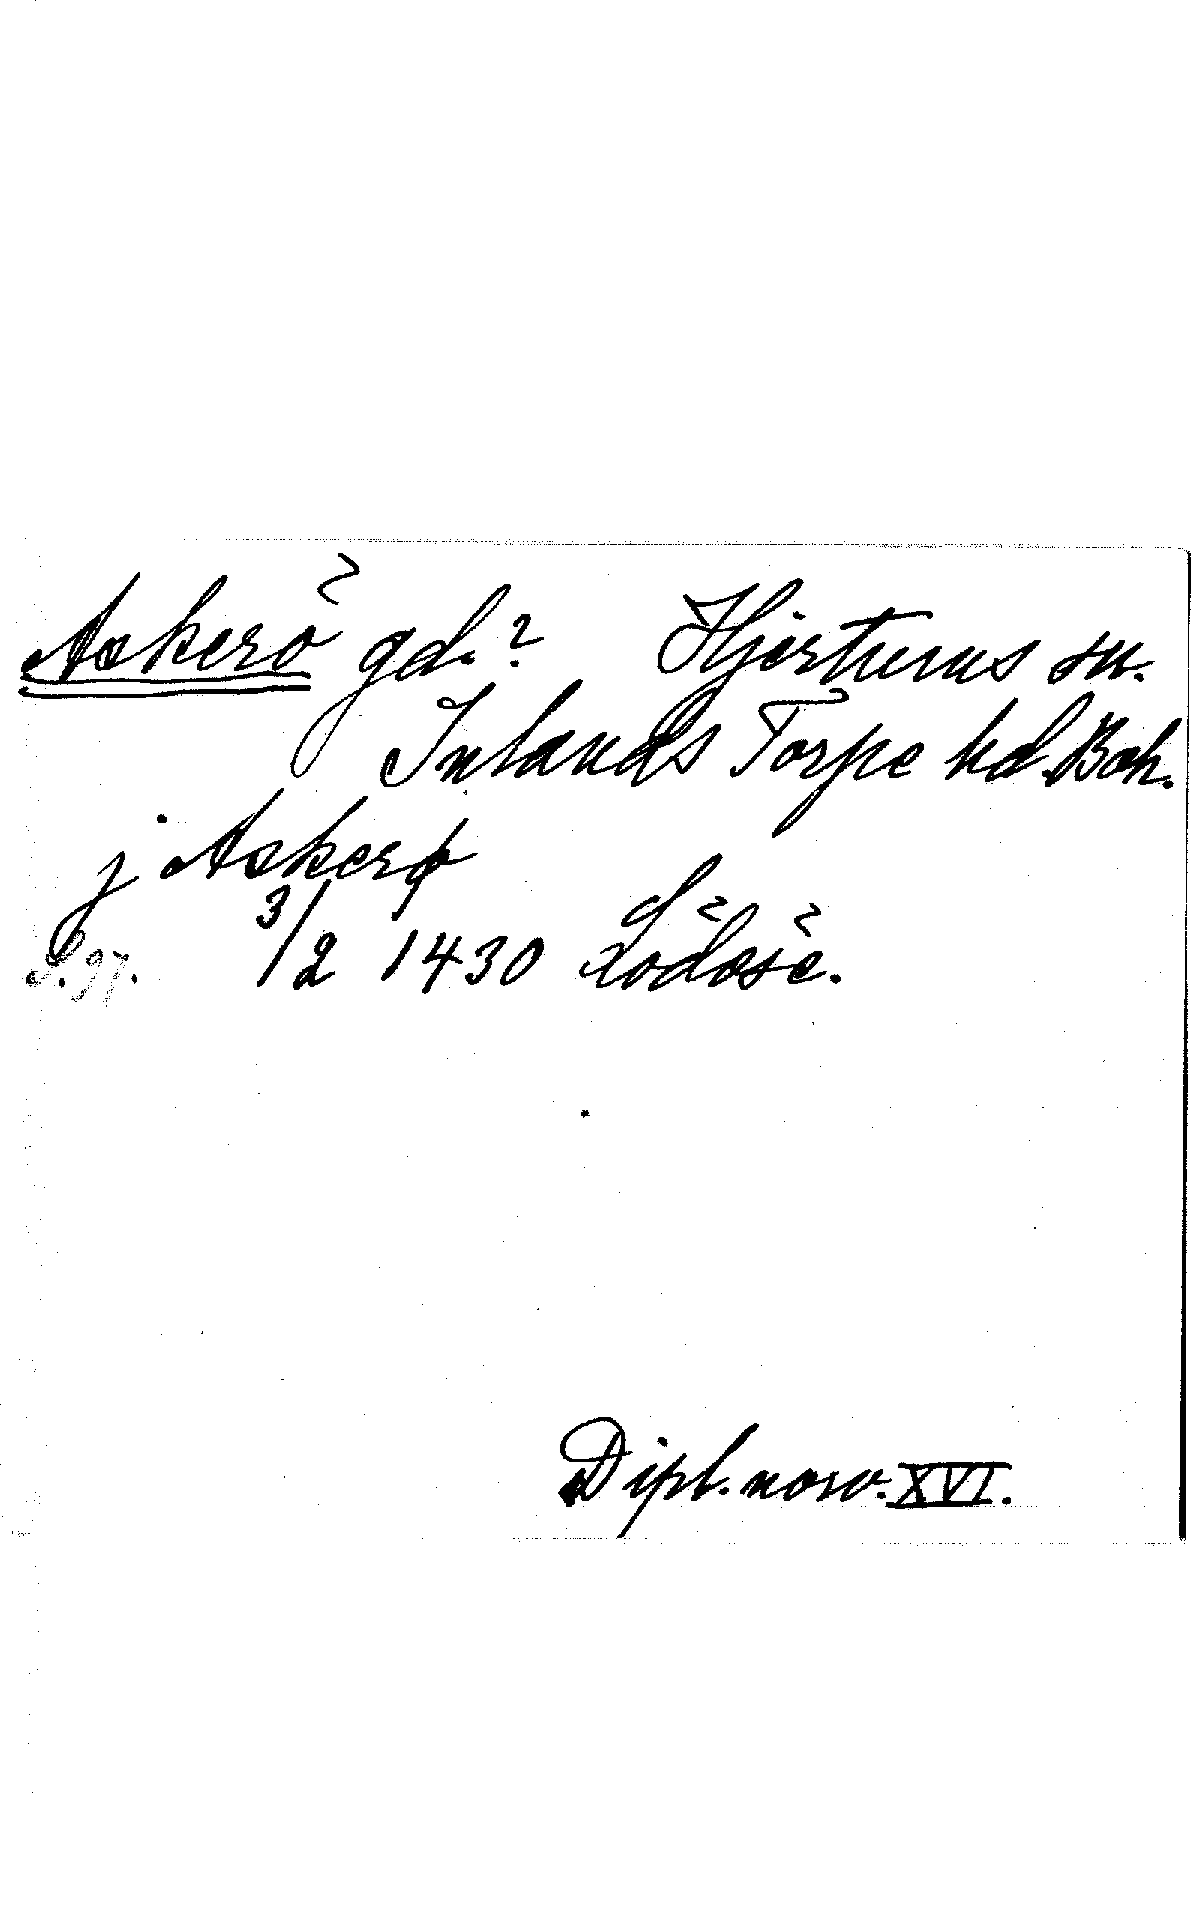 Askerö gd.? Hjärtums sn.
Inlands Torpe hd. Boh.
j Askerø
S. 97. 3/2 1430 Lödöse.
Dipl. norv. XVI.